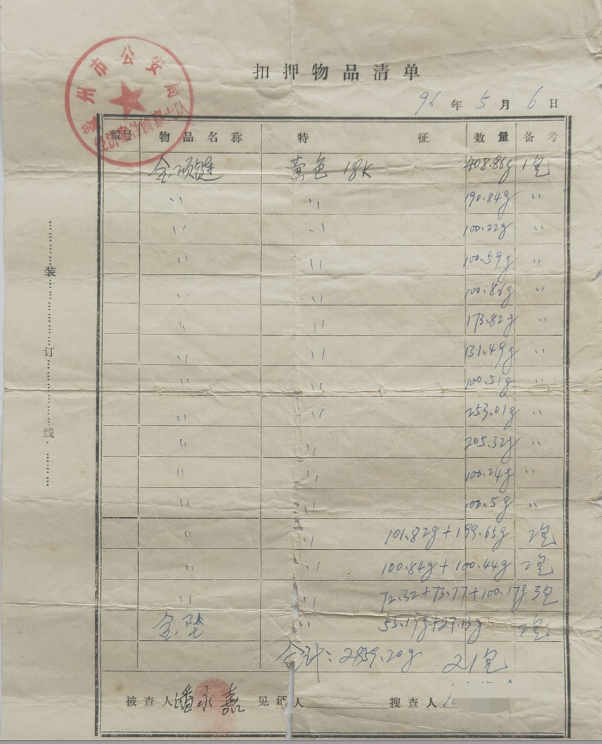 扣押物品清单
96年5月6日
州市公安局
编号 物品名称 特征 数量 备考
金项链 黄色 18K 408.86g 1包
〃 〃 190.84g 〃
〃 〃 100.22g 〃
〃 〃 100.59g 〃
〃 〃 〃
〃 〃 173.82g 〃
〃 〃 131.49g 〃
〃 〃 100.51g 〃
〃 〃 253.01g 〃
〃 〃 205.32g 〃
〃 〃 100.24g 〃
〃 〃 100.5g 〃
〃 〃 101.82g+199.63g 2包
〃 〃 100.84g+100.44g 2包
〃 〃 72.32+73.77+100.17g 3包
金坠 〃 2包
合计:2859.20g 21包
被查人 潘永嘉 见证人 搜查人
装订线